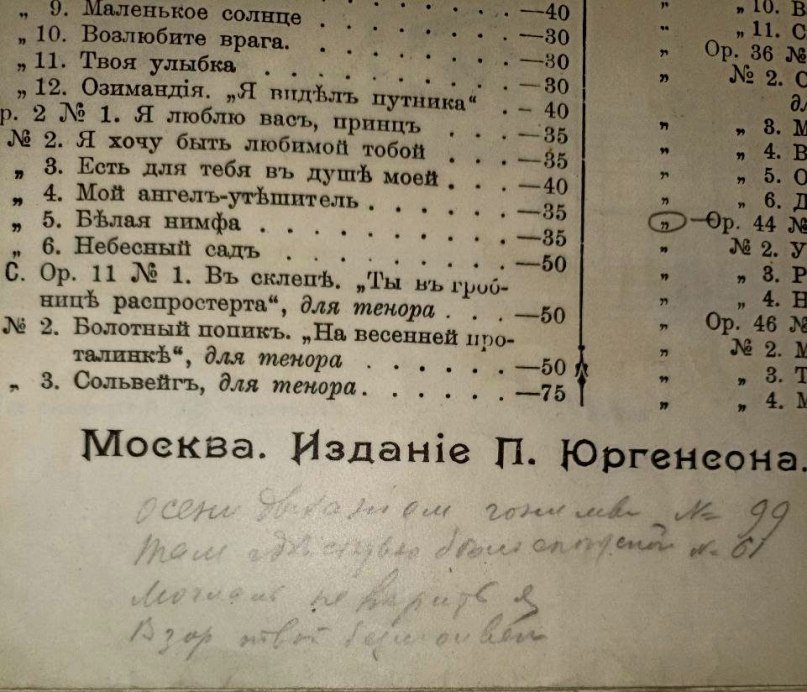 „ 9. Маленькое солнце . . . . . . —40
„ 10. Возлюбите врага. . . . . . . —30
„ 11. Твоя улыбка . . . . . . . . —30
„ 12. Озимандія. „Я видѣлъ путника“ —30
р. 2 № 1. Я люблю васъ, принцъ . . . - 40
№ 2. Я хочу быть любимой тобой . . . —35
„ 3. Есть для тебя въ душѣ моей . . . —35
„ 4. Мой ангелъ-утѣшитель . . . . . —40
„ 5. Бѣлая нимфа . . . . . . . —35
„ 6. Небесный садъ . . . . . . —35
С. Ор. 11 № 1. Въ склепѣ. „Ты въ гроб- —50
ницѣ распростерта“, для тенора . . . —50
№ 2. Болотный попикъ. „На весенней про-
талинкѣ“, для тенора . . . . . . —50
„ 3. Сольвейгъ, для тенора . . . . . . —75
„ „ 10. В
„ „ 11. С
„ Ор. 36 №
„ № 2. С
„ „ 3. М
„ „ 4. В
„ „ 5. О
„ „ 6. Д
„ Ор. 44 №
„ № 2. У
„ „ 3. Р
„ „ 4. Н
„ Ор. 46 №
„ № 2. М
„ „ 3. Т
„ „ 4. М
Москва. Изданіе П. Юргенсона.
осени дыханием гонимы № 99
Там где № 61
не верить я
Взор твой безмолвен